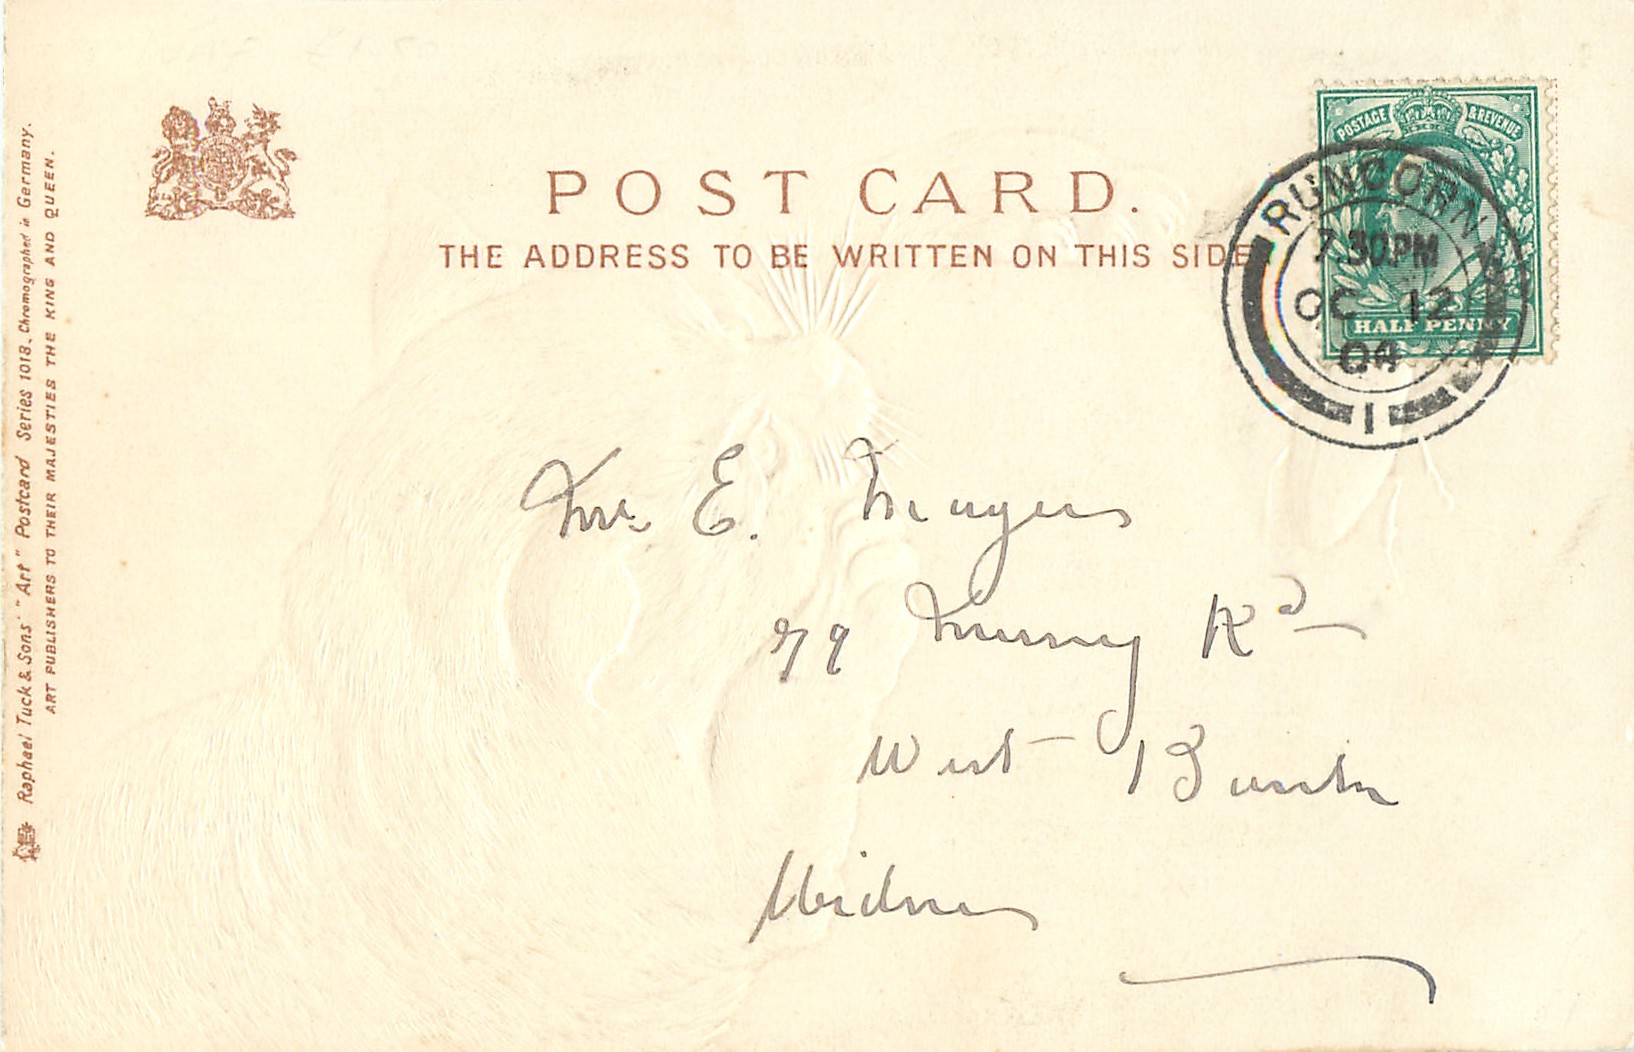 POST CARD.
THE ADDRESS TO BE WRITTEN ON THIS SIDE.
POSTAGE & REVENUE
HALF PENNY
RUNCORN
7.30PM
OC 12
04
1
Raphael Tuck & Sons' "Art" Postcard Series 1018. Chromographed in Germany.
ART PUBLISHERS TO THEIR MAJESTIES THE KING AND QUEEN.
E.
79 Rd
West Bank
Widnes